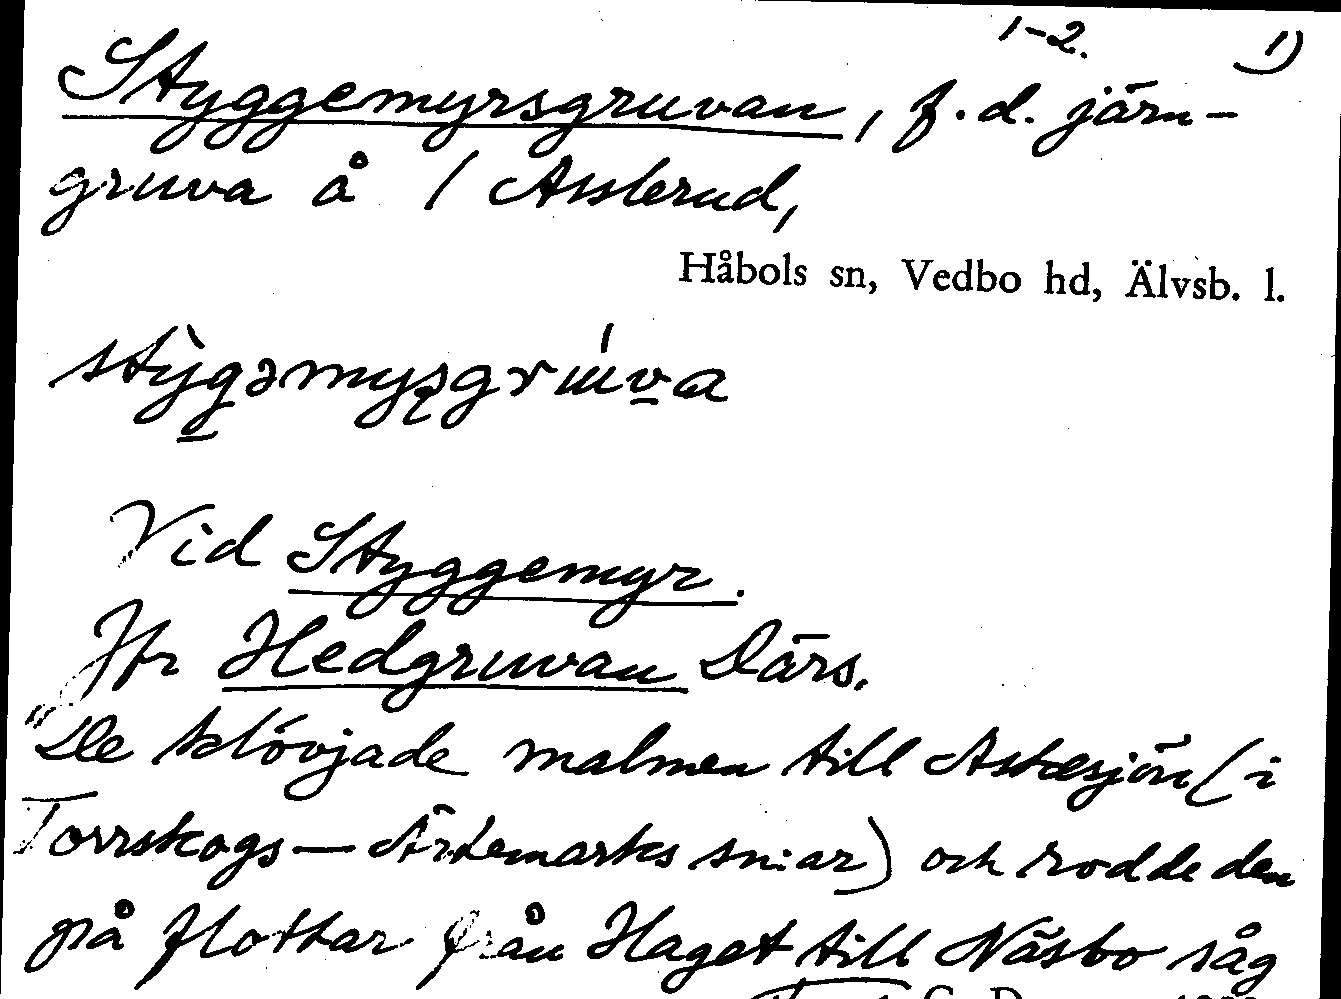 1-2. 1)
Styggemyrsgruvan, f.d. järn-
gruva å / Asslerud,
Håbols sn, Vedbo hd, Älvsb. l.
Vid Styggemyr.
Jfr Hedgruvan Därs.
"De klövjade malmen till Askesjön (i
Torrskogs-Ärtemarks sn:ar) och rodde den
på flottar från Haget till Näsbo såg